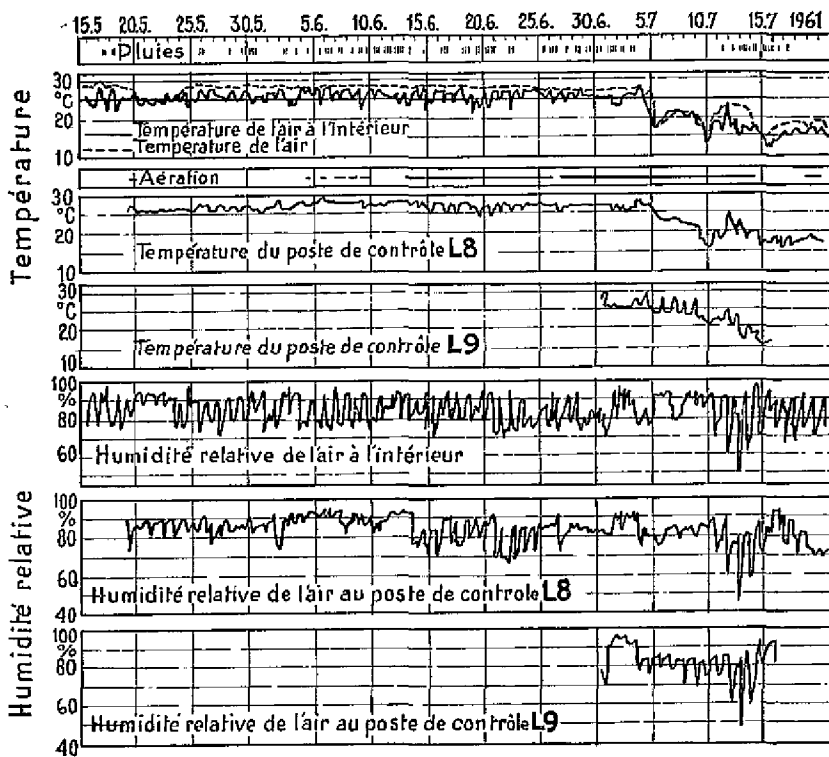 15.5 20.5. 25.5. 30.5. 5.6. 10.6. 15.6. 20.6. 25.6. 30.6. 5.7 10.7 15.7 1961
Pluies
Température
30
°C
20
10
Température de l'air à l'intérieur
Température de l'air
Aération
30
°C
20
10
Température du poste de contrôle L8
30
°C
20
10
Température du poste de contrôle L9
Humidité relative
100
%
80
60
Humidité relative de l'air à l'intérieur
100
%
80
60
40
Humidité relative de l'air au poste de controle L8
100
%
80
60
40
Humidité relative de l'air au poste de contrôle L9